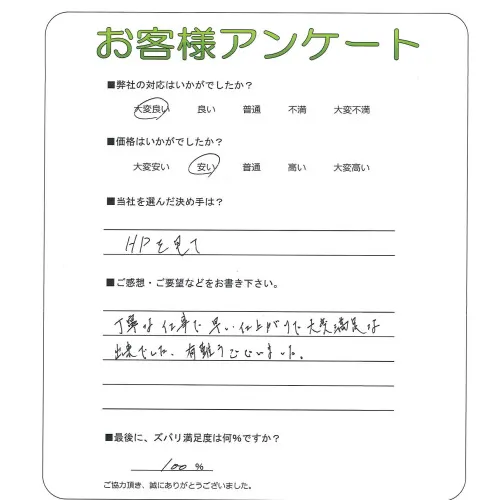 お客様アンケート
■弊社の対応はいかがでしたか？
大変良い 良い 普通 不満 大変不満
■価格はいかがでしたか？
大変安い 安い 普通 高い 大変高い
■当社を選んだ決め手は？
HPを見て
■ご感想・ご要望などをお書き下さい。
丁寧な仕事で早い仕上がりで大変満足な
出来でした、有難うございました。
■最後に、ズバリ満足度は何%ですか？
100 %
ご協力頂き、誠にありがとうございました。